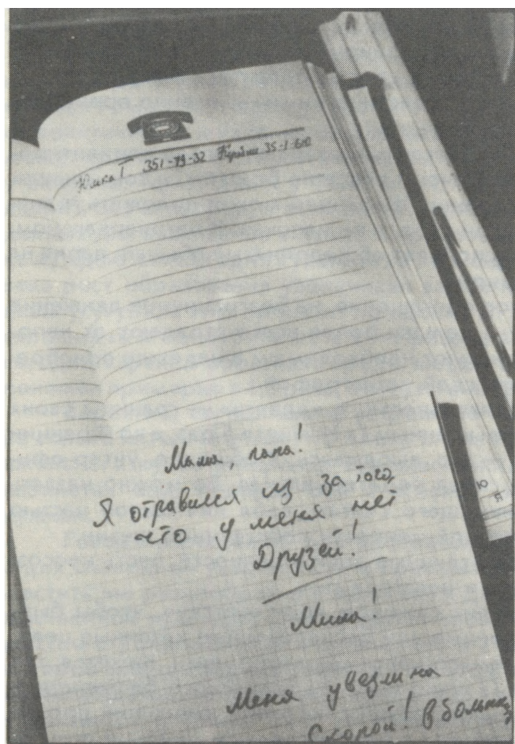 Юлка Т 351-79-32
Мама, папа!
Я отравился из за того,
что у меня нет
Друзей!
Миша!
Меня увезли на
Скорой! в больницу
Ю
Я